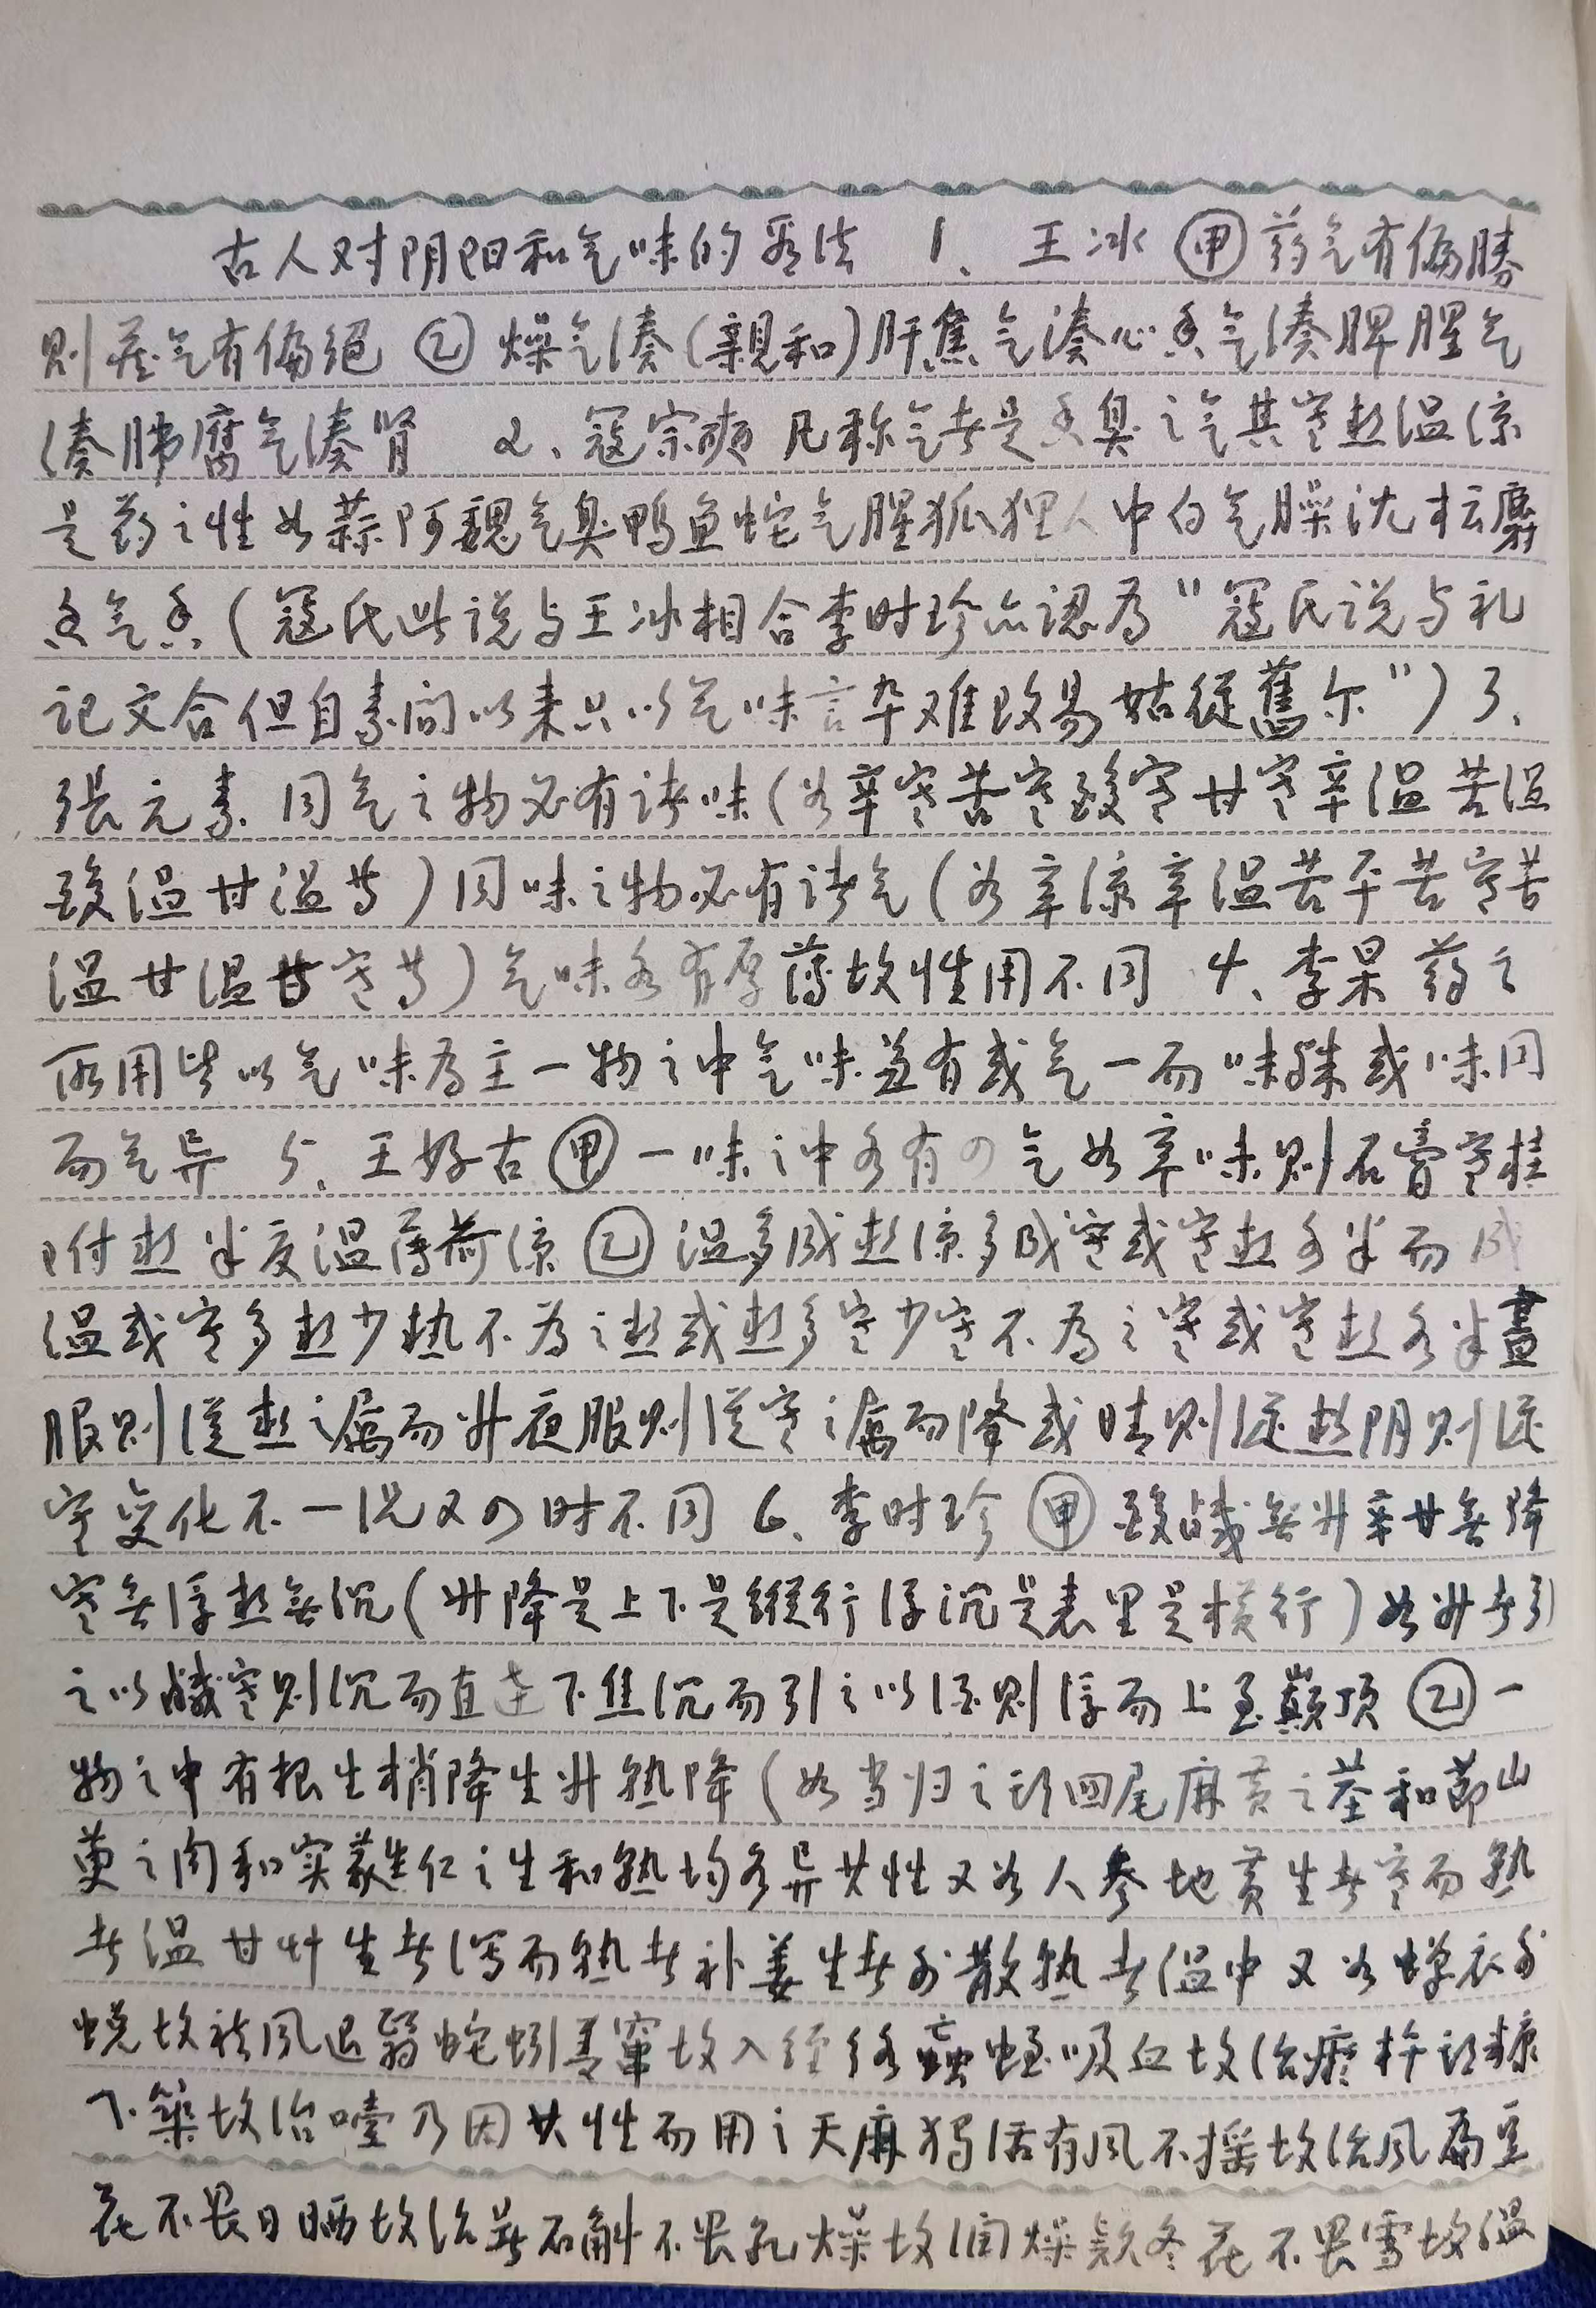 古人对阴阳和气味的看法 1、王冰 ㊙甲 药气有偏勝
则茬气有偏绝 乙 燥气凑(親和)肝焦气凑心香气凑脾腥气
凑肺腐气凑肾 2、寇宗奭 凡称气者是香臭之气其寒热温凉
是药之性如蒜阿魏气臭鸭鱼蛇气腥狐狸人中白气臊沈檀麝
香气香(寇氏此说与王冰相合李时珍亦認为"寇氏说与礼
记文合但自素问以来只以气味言卒难改易姑從舊尔")3、
張元素 同气之物必有诸味(如辛寒苦寒酸寒甘寒辛温苦温
酸温甘温等)同味之物必有诸气(如辛凉辛温苦平苦寒苦
温甘温甘寒等)气味各有厚薄故性用不同 4、李杲 药之
所用皆以气味为主一物之中气味兼有或气一而味殊或味同
而气异 5、王好古 甲 一味之中各有四气如辛味则石膏寒桂
附热半夏温薄荷凉 乙 温多成热凉多成寒或寒热各半而成
温或寒多热少热不为之热或热多寒少寒不为之寒或寒热各半晝
服则從热之属而升夜服则從寒之属而降或晴则從热阴则從
寒变化不一况又四时不同 6、李时珍 甲 酸鹹無升辛甘無降
寒無浮热無沉(升降是上下是縱行浮沉是表里是横行)如升者引
之以鹹寒则沉而直达下焦沉而引之以酒则浮而上至巅顶 乙 一
物之中有根生梢降生升熟降(如当归之頭四尾麻黄之茎和節山
萸之肉和实蕤仁之生和熟均各异其性又如人参地黄生者寒而熟
者温甘艸生者泻而熟者补姜生者外散熟者温中又如蝉衣外
蜕故祛风退翳蛇蚓善窜故入经络蝱蛭吸血故治瘀杵頭糠
下築故治噎乃因其性而用之天麻獨活有风不摇故治风扁豆
花不畏日晒故治暑石斛不畏乾燥故润燥款冬花不畏雪故温